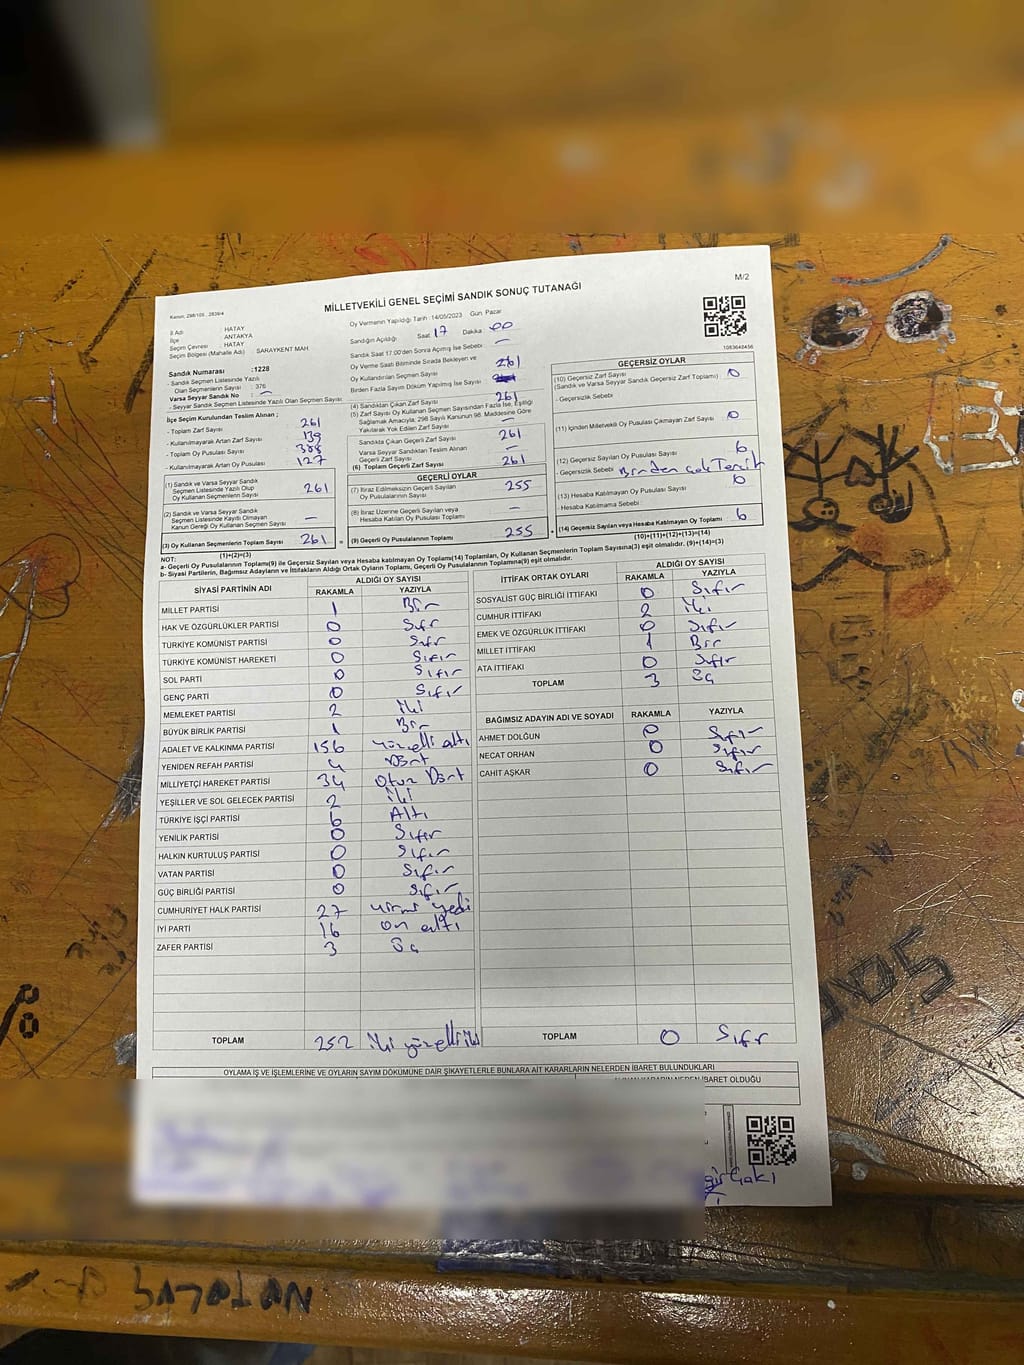 Kanun: 298/105 , 2839/4
MİLLETVEKİLİ GENEL SEÇİMİ SANDIK SONUÇ TUTANAĞI
M/2
İl Adı : HATAY
İlçe : ANTAKYA
Seçim Çevresi : HATAY
Seçim Bölgesi (Mahalle Adı) : SARAYKENT MAH.
Sandık Numarası :1228
- Sandık Seçmen Listesinde Yazılı
Olan Seçmenlerin Sayısı : 376
Varsa Seyyar Sandık No : -
- Seyyar Sandık Seçmen Listesinde Yazılı Olan Seçmen Sayısı
İlçe Seçim Kurulundan Teslim Alınan ;
- Toplam Zarf Sayısı 261
- Kullanılmayarak Artan Zarf Sayısı 139
- Toplam Oy Pusulası Sayısı 388
- Kullanılmayarak Artan Oy Pusulası 127
(1) Sandık ve Varsa Seyyar Sandık
Seçmen Listesinde Yazılı Olup
Oy Kullanan Seçmenlerin Sayısı 261
(2) Sandık ve Varsa Seyyar Sandık
Seçmen Listesinde Kaydı Olmayan
Kanun Gereği Oy Kullanan Seçmen Sayısı —
(3) Oy Kullanan Seçmenlerin Toplam Sayısı 261 =
(1)+(2)=(3)
Oy Vermenin Yapıldığı Tarih :14/05/2023 Gün Pazar
Sandığın Açıldığı Saat 17 Dakika 00
Sandık Saat 17:00'den Sonra Açılmış İse Sebebi —
Oy Verme Saati Bitiminde Sırada Bekleyen ve
Oy Kullandırılan Seçmen Sayısı 261
Birden Fazla Sayım Döküm Yapılmış İse Sayısı
(4) Sandıktan Çıkan Zarf Sayısı 261
(5) Zarf Sayısı Oy Kullanan Seçmen Sayısından Fazla İse, Eşitliği
Sağlamak Amacıyla; 298 Sayılı Kanunun 98. Maddesine Göre
Yakılarak Yok Edilen Zarf Sayısı —
Sandıkta Çıkan Geçerli Zarf Sayısı 261
Varsa Seyyar Sandıktan Teslim Alınan
Geçerli Zarf Sayısı —
(6) Toplam Geçerli Zarf Sayısı 261
GEÇERLİ OYLAR
(7) İtiraz Edilmeksizin Geçerli Sayılan
Oy Pusulalarının Sayısı 255
(8) İtiraz Üzerine Geçerli Sayılan veya
Hesaba Katılan Oy Pusulası Toplamı —
(9) Geçerli Oy Pusulalarının Toplamı 255 +
1083648456
GEÇERSİZ OYLAR
(10) Geçersiz Zarf Sayısı
(Sandık ve Varsa Seyyar Sandık Geçersiz Zarf Toplamı) 0
- Geçersizlik Sebebi
(11) İçinden Milletvekili Oy Pusulası Çıkmayan Zarf Sayısı 0
(12) Geçersiz Sayılan Oy Pusulası Sayısı 6
- Geçersizlik Sebebi Birden çok Tercih
(13) Hesaba Katılmayan Oy Pusulası Sayısı 0
- Hesaba Katılmama Sebebi
(14) Geçersiz Sayılan veya Hesaba Katılmayan Oy Toplamı 6
(10)+(11)+(12)+(13)=(14)
NOT:
a- Geçerli Oy Pusulalarının Toplamı(9) ile Geçersiz Sayılan veya Hesaba katılmayan Oy Toplamı(14) Toplamları, Oy Kullanan Seçmenlerin Toplam Sayısına(3) eşit olmalıdır. (9)+(14)=(3)
b- Siyasi Partilerin, Bağımsız Adayların ve İttifakların Aldığı Ortak Oyların Toplamı, Geçerli Oy Pusulalarının Toplamına(9) eşit olmalıdır.
SİYASİ PARTİNİN ADI ALDIĞI OY SAYISI
RAKAMLA YAZIYLA
MİLLET PARTİSİ 1 Bir
HAK VE ÖZGÜRLÜKLER PARTİSİ 0 Sıfır
TÜRKİYE KOMÜNİST PARTİSİ 0 Sıfır
TÜRKİYE KOMÜNİST HAREKETİ 0 Sıfır
SOL PARTİ 0 Sıfır
GENÇ PARTİ 0 Sıfır
MEMLEKET PARTİSİ 2 iki
BÜYÜK BİRLİK PARTİSİ 1 Bir
ADALET VE KALKINMA PARTİSİ 156 yüzelli altı
YENİDEN REFAH PARTİSİ 4 Dört
MİLLİYETÇİ HAREKET PARTİSİ 34 Otuz Dört
YEŞİLLER VE SOL GELECEK PARTİSİ 2 iki
TÜRKİYE İŞÇİ PARTİSİ 6 Altı
YENİLİK PARTİSİ 0 Sıfır
HALKIN KURTULUŞ PARTİSİ 0 Sıfır
VATAN PARTİSİ 0 Sıfır
GÜÇ BİRLİĞİ PARTİSİ 0 Sıfır
CUMHURİYET HALK PARTİSİ 27 yirmi yedi
İYİ PARTİ 16 on altı
ZAFER PARTİSİ 3 Üç
TOPLAM 252 iki yüzelli iki
İTTİFAK ORTAK OYLARI ALDIĞI OY SAYISI
RAKAMLA YAZIYLA
SOSYALİST GÜÇ BİRLİĞİ İTTİFAKI 0 Sıfır
CUMHUR İTTİFAKI 2 iki
EMEK VE ÖZGÜRLÜK İTTİFAKI 0 Sıfır
MİLLET İTTİFAKI 1 Bir
ATA İTTİFAKI 0 Sıfır
TOPLAM 3 Üç
BAĞIMSIZ ADAYIN ADI VE SOYADI RAKAMLA YAZIYLA
AHMET DOLĞUN 0 Sıfır
NECAT ORHAN 0 Sıfır
CAHİT AŞKAR 0 Sıfır
TOPLAM 0 Sıfır
OYLAMA İŞ VE İŞLEMLERİNE VE OYLARIN SAYIM DÖKÜMÜNE DAİR ŞİKAYETLERLE BUNLARA AİT KARARLARIN NELERDEN İBARET BULUNDUKLARI